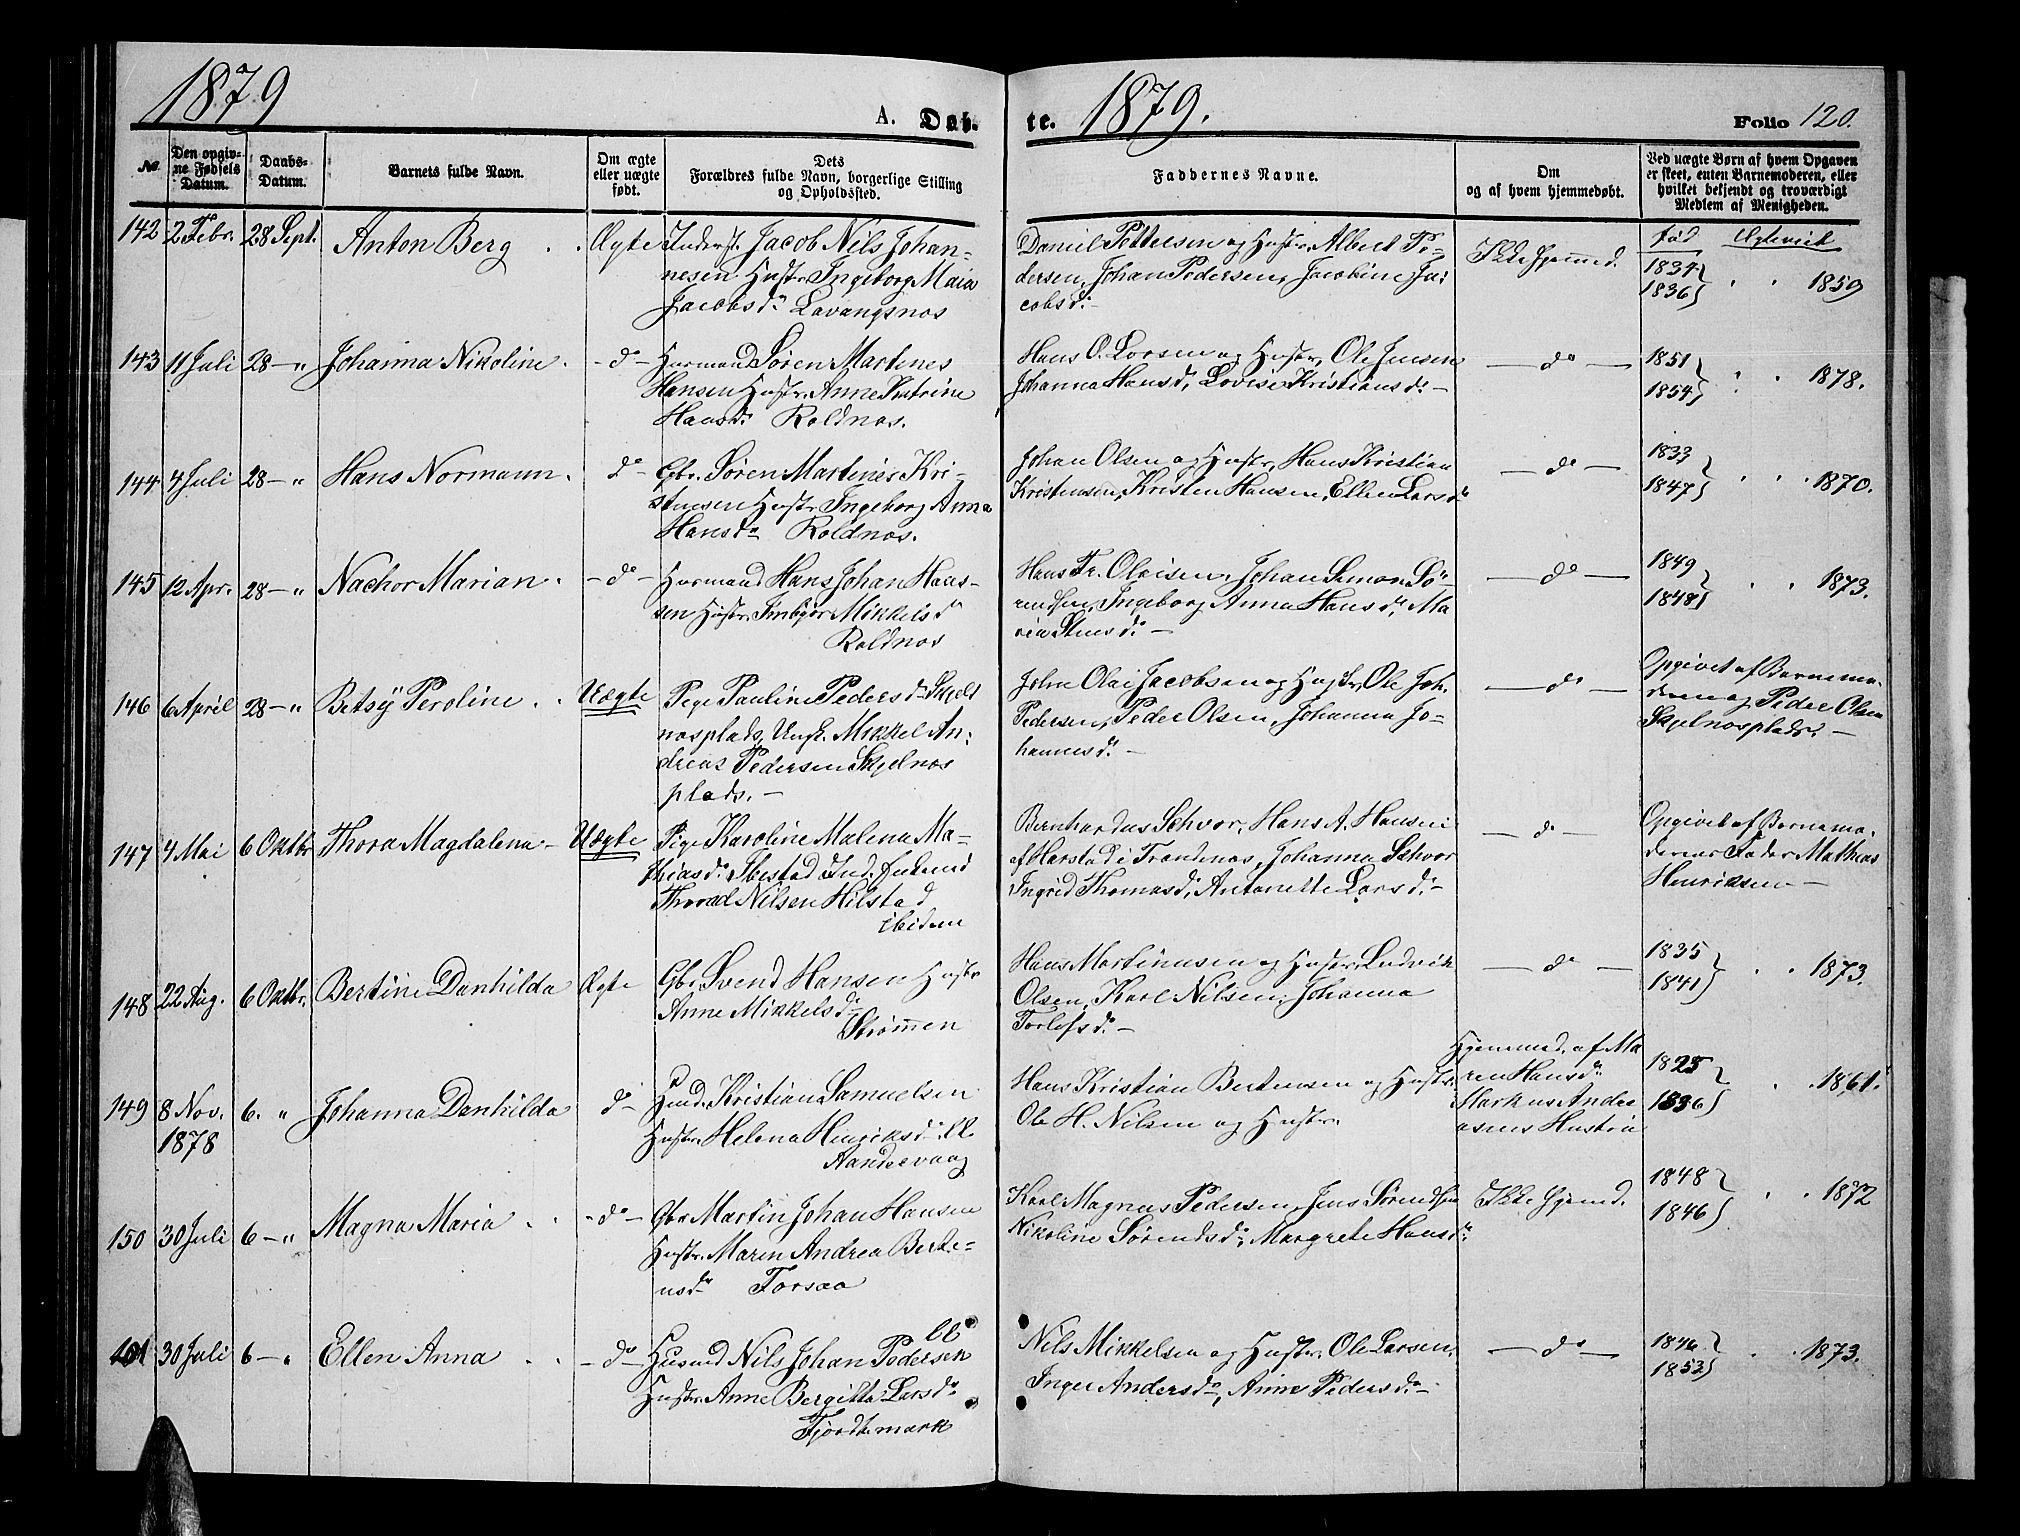 1879
A. Døb-
te.
1879.
Folio 120.
No.
Den opgiv-
ne Fødsels
Datum.
Daabs-
Datum.
Barnets fulde Navn.
Om ægte
eller uægte
født.
Dets
Forældres fulde Navn, borgerlige Stilling
og Opholdssted.
Faddernes Navne.
Om
og af hvem hjemmedøbt.
Ved uægte Børn af hvem Opgaven
er skeet, enten Barnemoderen, eller
hvilket bekjendt og troværdigt
Medlem af Menigheden.
142 2 Febr. 28 Sept. Anton Berg Ægte
Inderst. Jacob Nils Johan-
nesen Hustr. Ingeborg Maia
Jacobsd. Lavangsnos
Daniel Pettersen og Hustr. Albert Pe-
dersen, Johan Pedersen, Jacobine Ja-
cobsd. —
Ikke hjemmd.
Fød Egteviet
1834
1836 " " 1859
143 11 Juli 28 — " Johanna Nikoline. — do —
Husmand Søren Martines
Hansen Hustr. Anne Katrine
Hansd. Roldnos.
Hans O. Larsen og Hustr., Ole Jensen
Johanna Hansd, Lovise Kristiansd. —
— do —
1851
1854 " " 1878.
144 4 Juli 28 — " Hans Normann. do
Gbr. Søren Martines Kri-
stensen Hustr. Ingeborg Anna
Hansd. Roldnos.
Johan Olsen og Hustr, Hans Kristian
Kristensen, Kristen Hansen, Ellen Larsd.
— do —
1833
1847 " " 1870.
145 12 Apr. 28 — " Nachor Marian. — do —
Husmand Hans Johan Han-
sen Hustr. Mikkelsd.
Roldnos
Hans Fr. Olaisen, Johan Simon Sö-
rendsen, Ingeborg Anna Hansd. Ma-
ria d. —
— do —
1849
1848 " " 1873.
146 6 April 28 — " Betsy Peroline Uægte
Pige Pauline Pedersd. Skjel-
nosplads, Ungk. Mikkel An-
dreas Pedersen Skjelnos
plads. —
John Olai Jacobsen og Hustr, Ole Joh.
Pedersen, Peder Olsen, Johanna Jo-
hannesd. —
— do —
Opgivet af Barnemo-
deren og Peder Olsen
Skjelnosplads. —
147 4 Mai 6 Oktbr Thora Magdalena — Uægte
Pige Karoline Malena Ma-
thiasd. Ibestad Ind. Enkemd
Thorval Nilsen Hilstad
ibidem
Bernhardus Schvor, Hans A. Hansen
af Harstad i Trondenos, Johanna Schvor
Ingrid Thomasd, Antonette Larsd. —
— do —
Opgivet af Barnemo-
derens Fader Mathias
Henriksen —
148 22 Aug. 6 Oktbr. Bertine Danhilda Ægte
Gbr. Svend Hansen Hustr
Anne Mikkelsd.
Strømmen
Hans Martinusen og Hustr. Ludvik
Olsen, Karl Nilsen, Johanna
Torlefsd. —
— do —
1835
1841 " " 1873.
149 8 Nov. 6. " Johanna Danhilda do —
1878
Husmd. Kristian Samuelsen
Hustr. Helena Henriksd.
Aandervaag
Hans Kristian Bertensen og Hustr.
Ole H. Nilsen og Hustr.
Hjemmed. af Ma-
ren Hansd.
Markus Andre-
asens Hustru
1825
1836 " " 1861.
150 30 Juli 6 — " Magna Maria — do —
Gbr. Martin Johan Hansen
Hustr. Maren Andrea Berte-
nsd. Forsaa
Karl Magnus Pedersen, Jens Sørendsen
Nikoline Sørendsd. Margrete Hansd.
Ikke hjemd.
1848
1846 " " 1872
151 30 Juli 6 — " Ellen Anna — do —
Husmd Nils Johan Pedersen
Hustr. Anne Bergitta Larsd.
Fjordtmark
Nils Mikkelsen og Hustr. Ole Larsen,
Inger Andersd, Anne Pedersd. —
— do —
1846
1853 " " 1873.